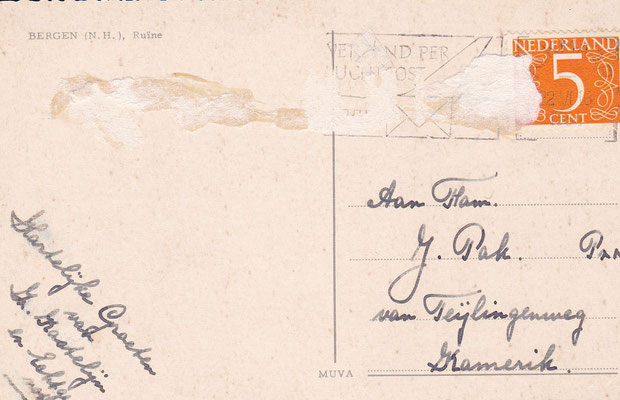 BERGEN (N.H.), Ruïne
VERZEND PER
LUCHTPOST
NEDERLAND
5
CENT
Aan Fam.
J. Pak.
van Teijlingenweg
Kamerik.
Hartelijke Groeten
van
en
MUVA